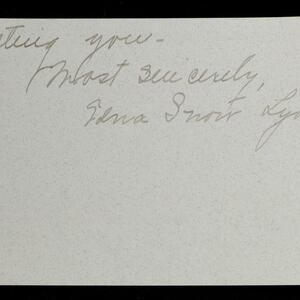 you-
Most sincerely,
Edna Snow